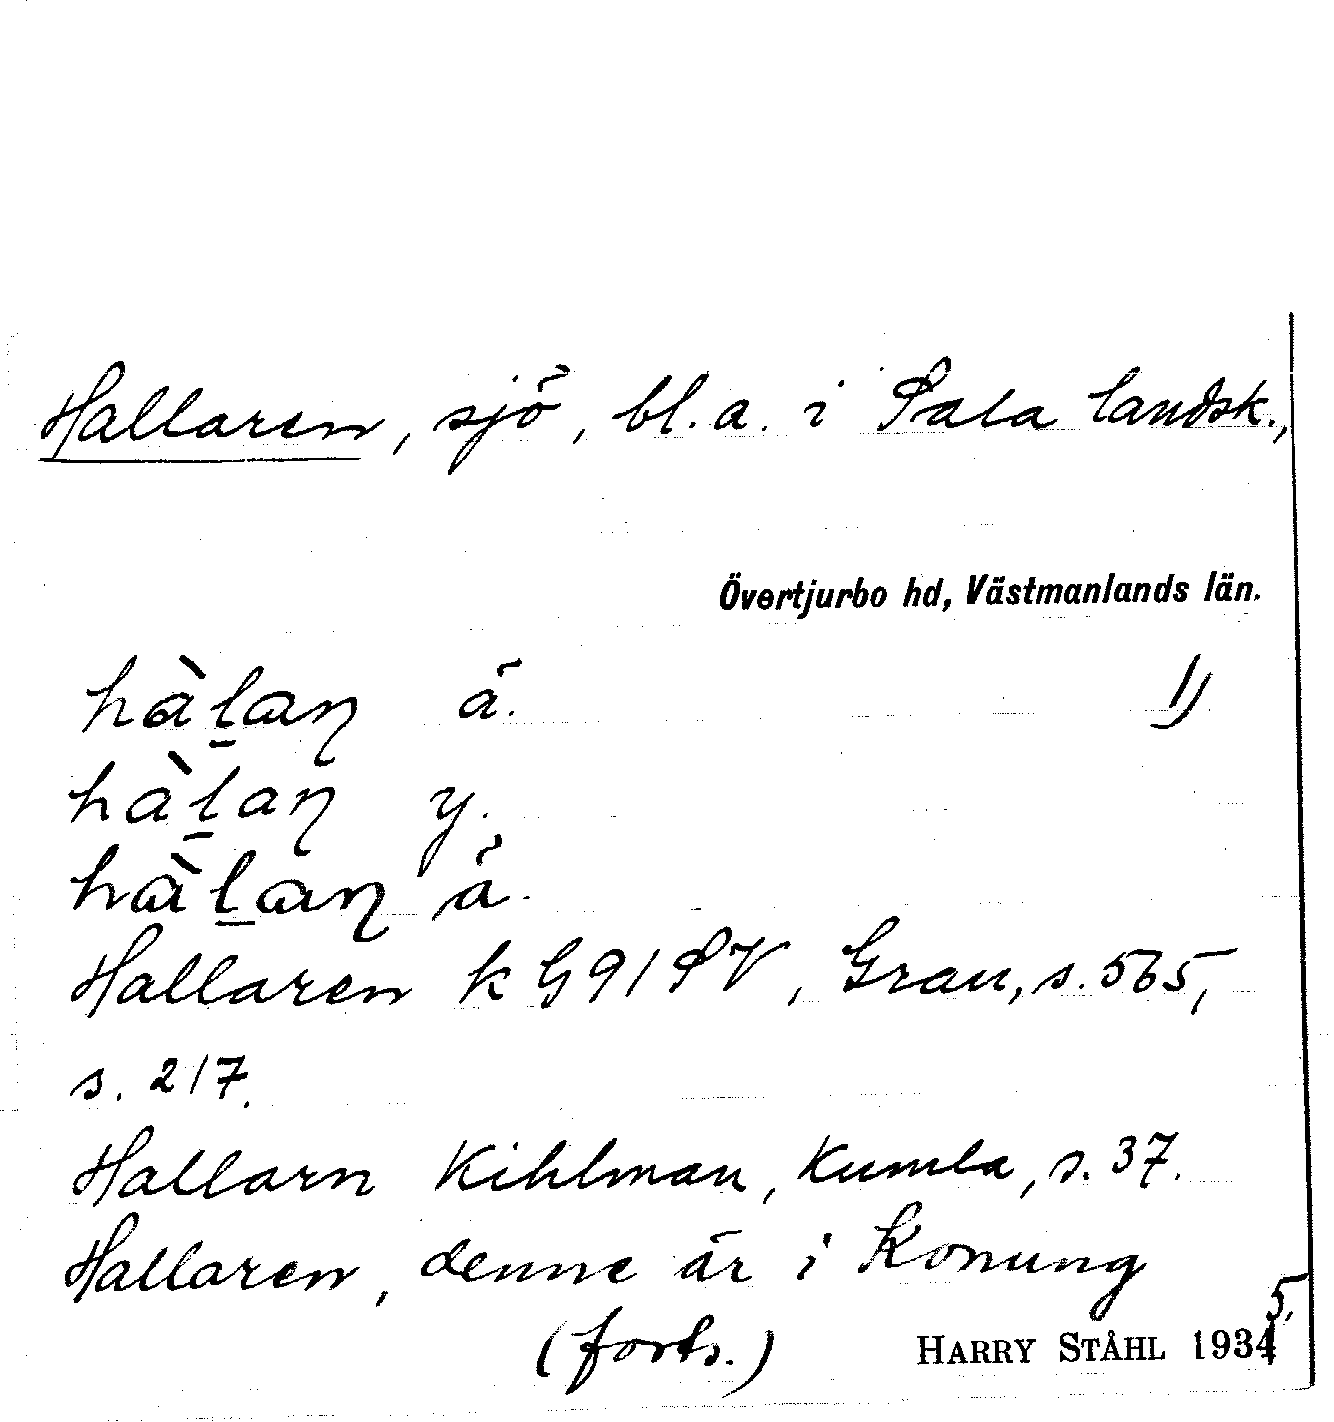 Hallaren, sjö, bl. a. i Sala landsk.,
Övertjurbo hd, Västmanlands län.
hàl̠aꞑ ä. 1)
hàl̠aꞑ y.
hàl̠aꞑ ä.
Hallaren k G 91 SV, Grau, s. 565,
s. 217.
Hallarn Kihlman, Kumla, s. 37.
Hallaren, denne är i Konung
(forts.) HARRY STÅHL 1934 5.